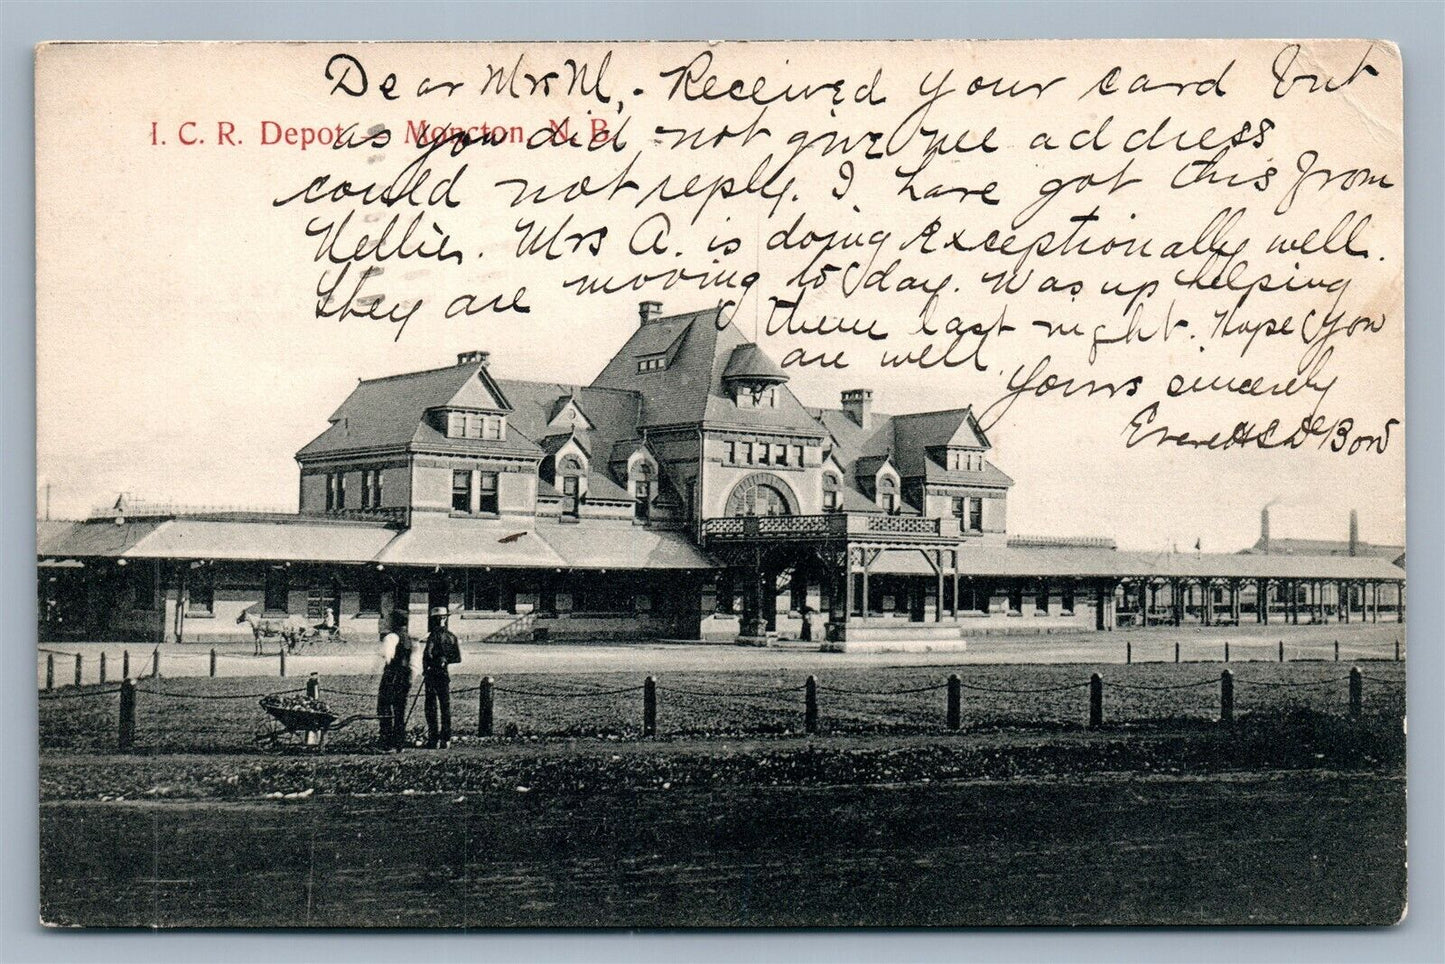 Dear Mrs M. - Received your card but
I. C. R. Depot — Moncton, N. B.
as you did not give me address
could not reply. I have got this from
Nellie. Mrs A. is doing exceptionally well.
they are moving to day. Was up helping
them last night. Hope you
are well.
Yours sincerely
Everett S De Bow